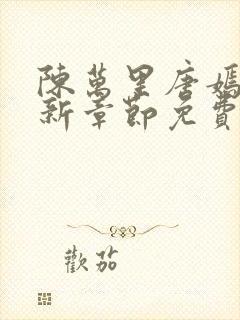 陳萬里唐嫣
新章節免費
歡茄